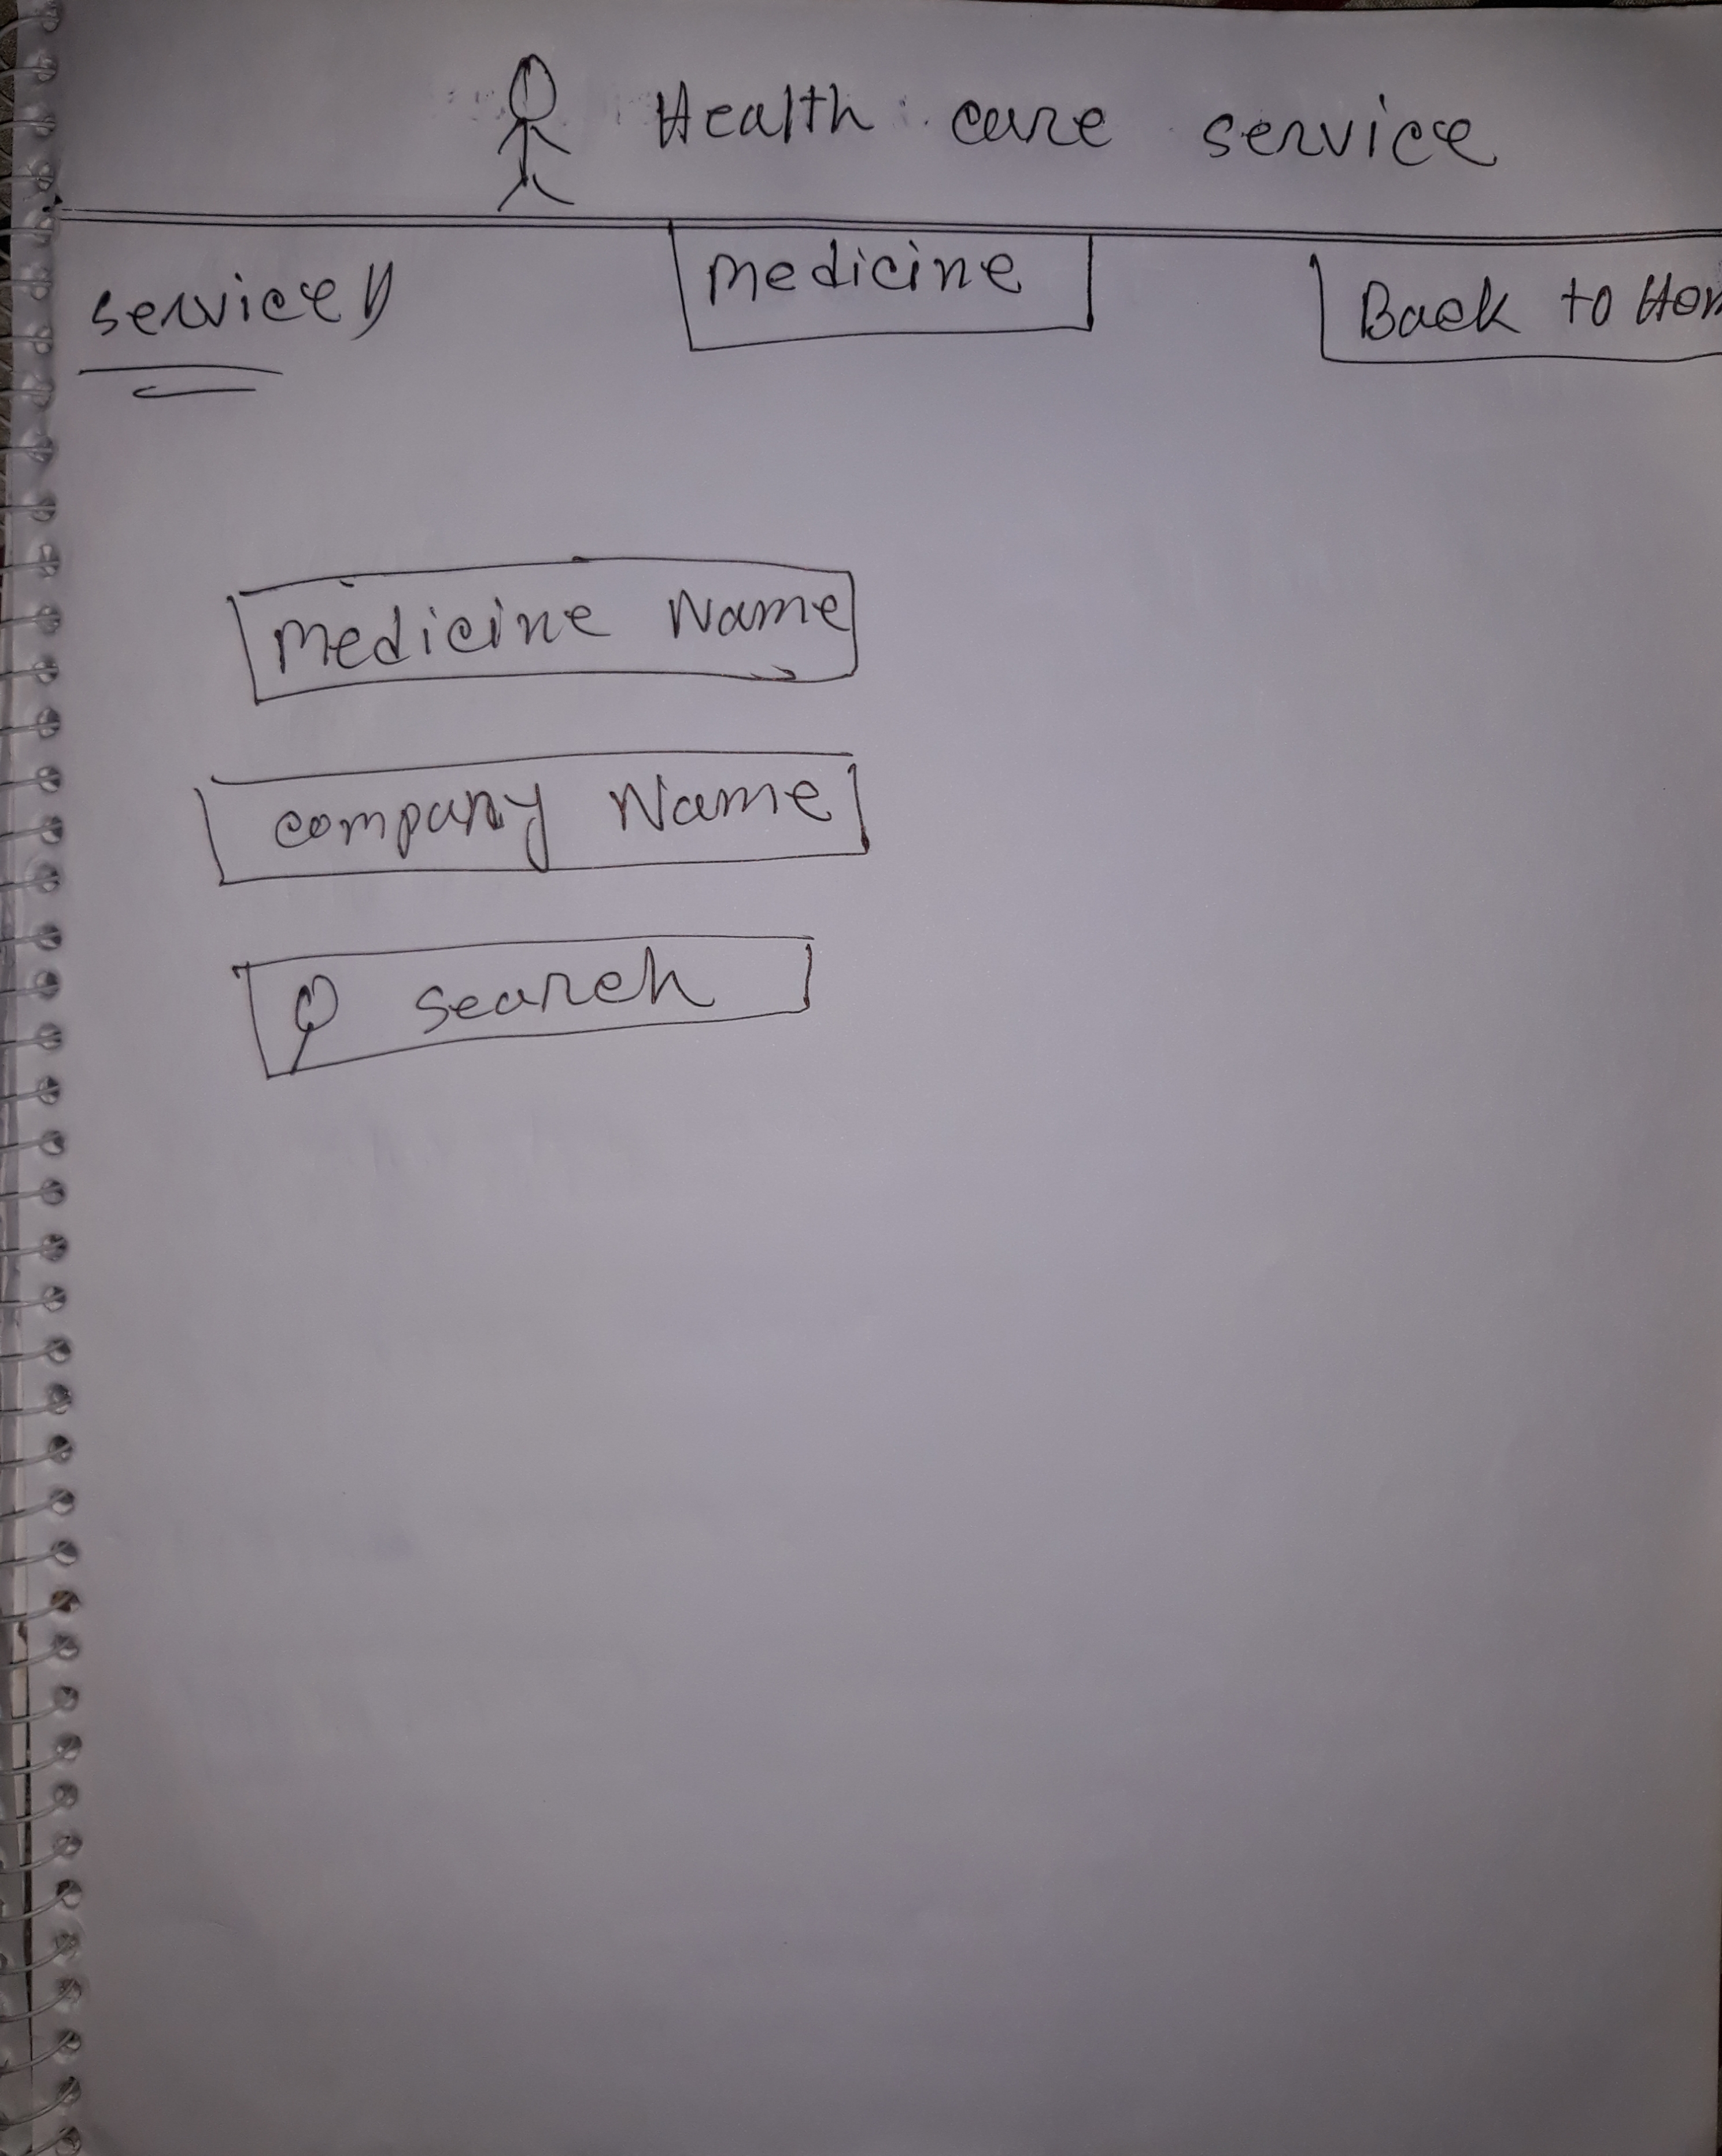 Health care service
service
medicine
Back to Hom
medicine Name
company Name
search